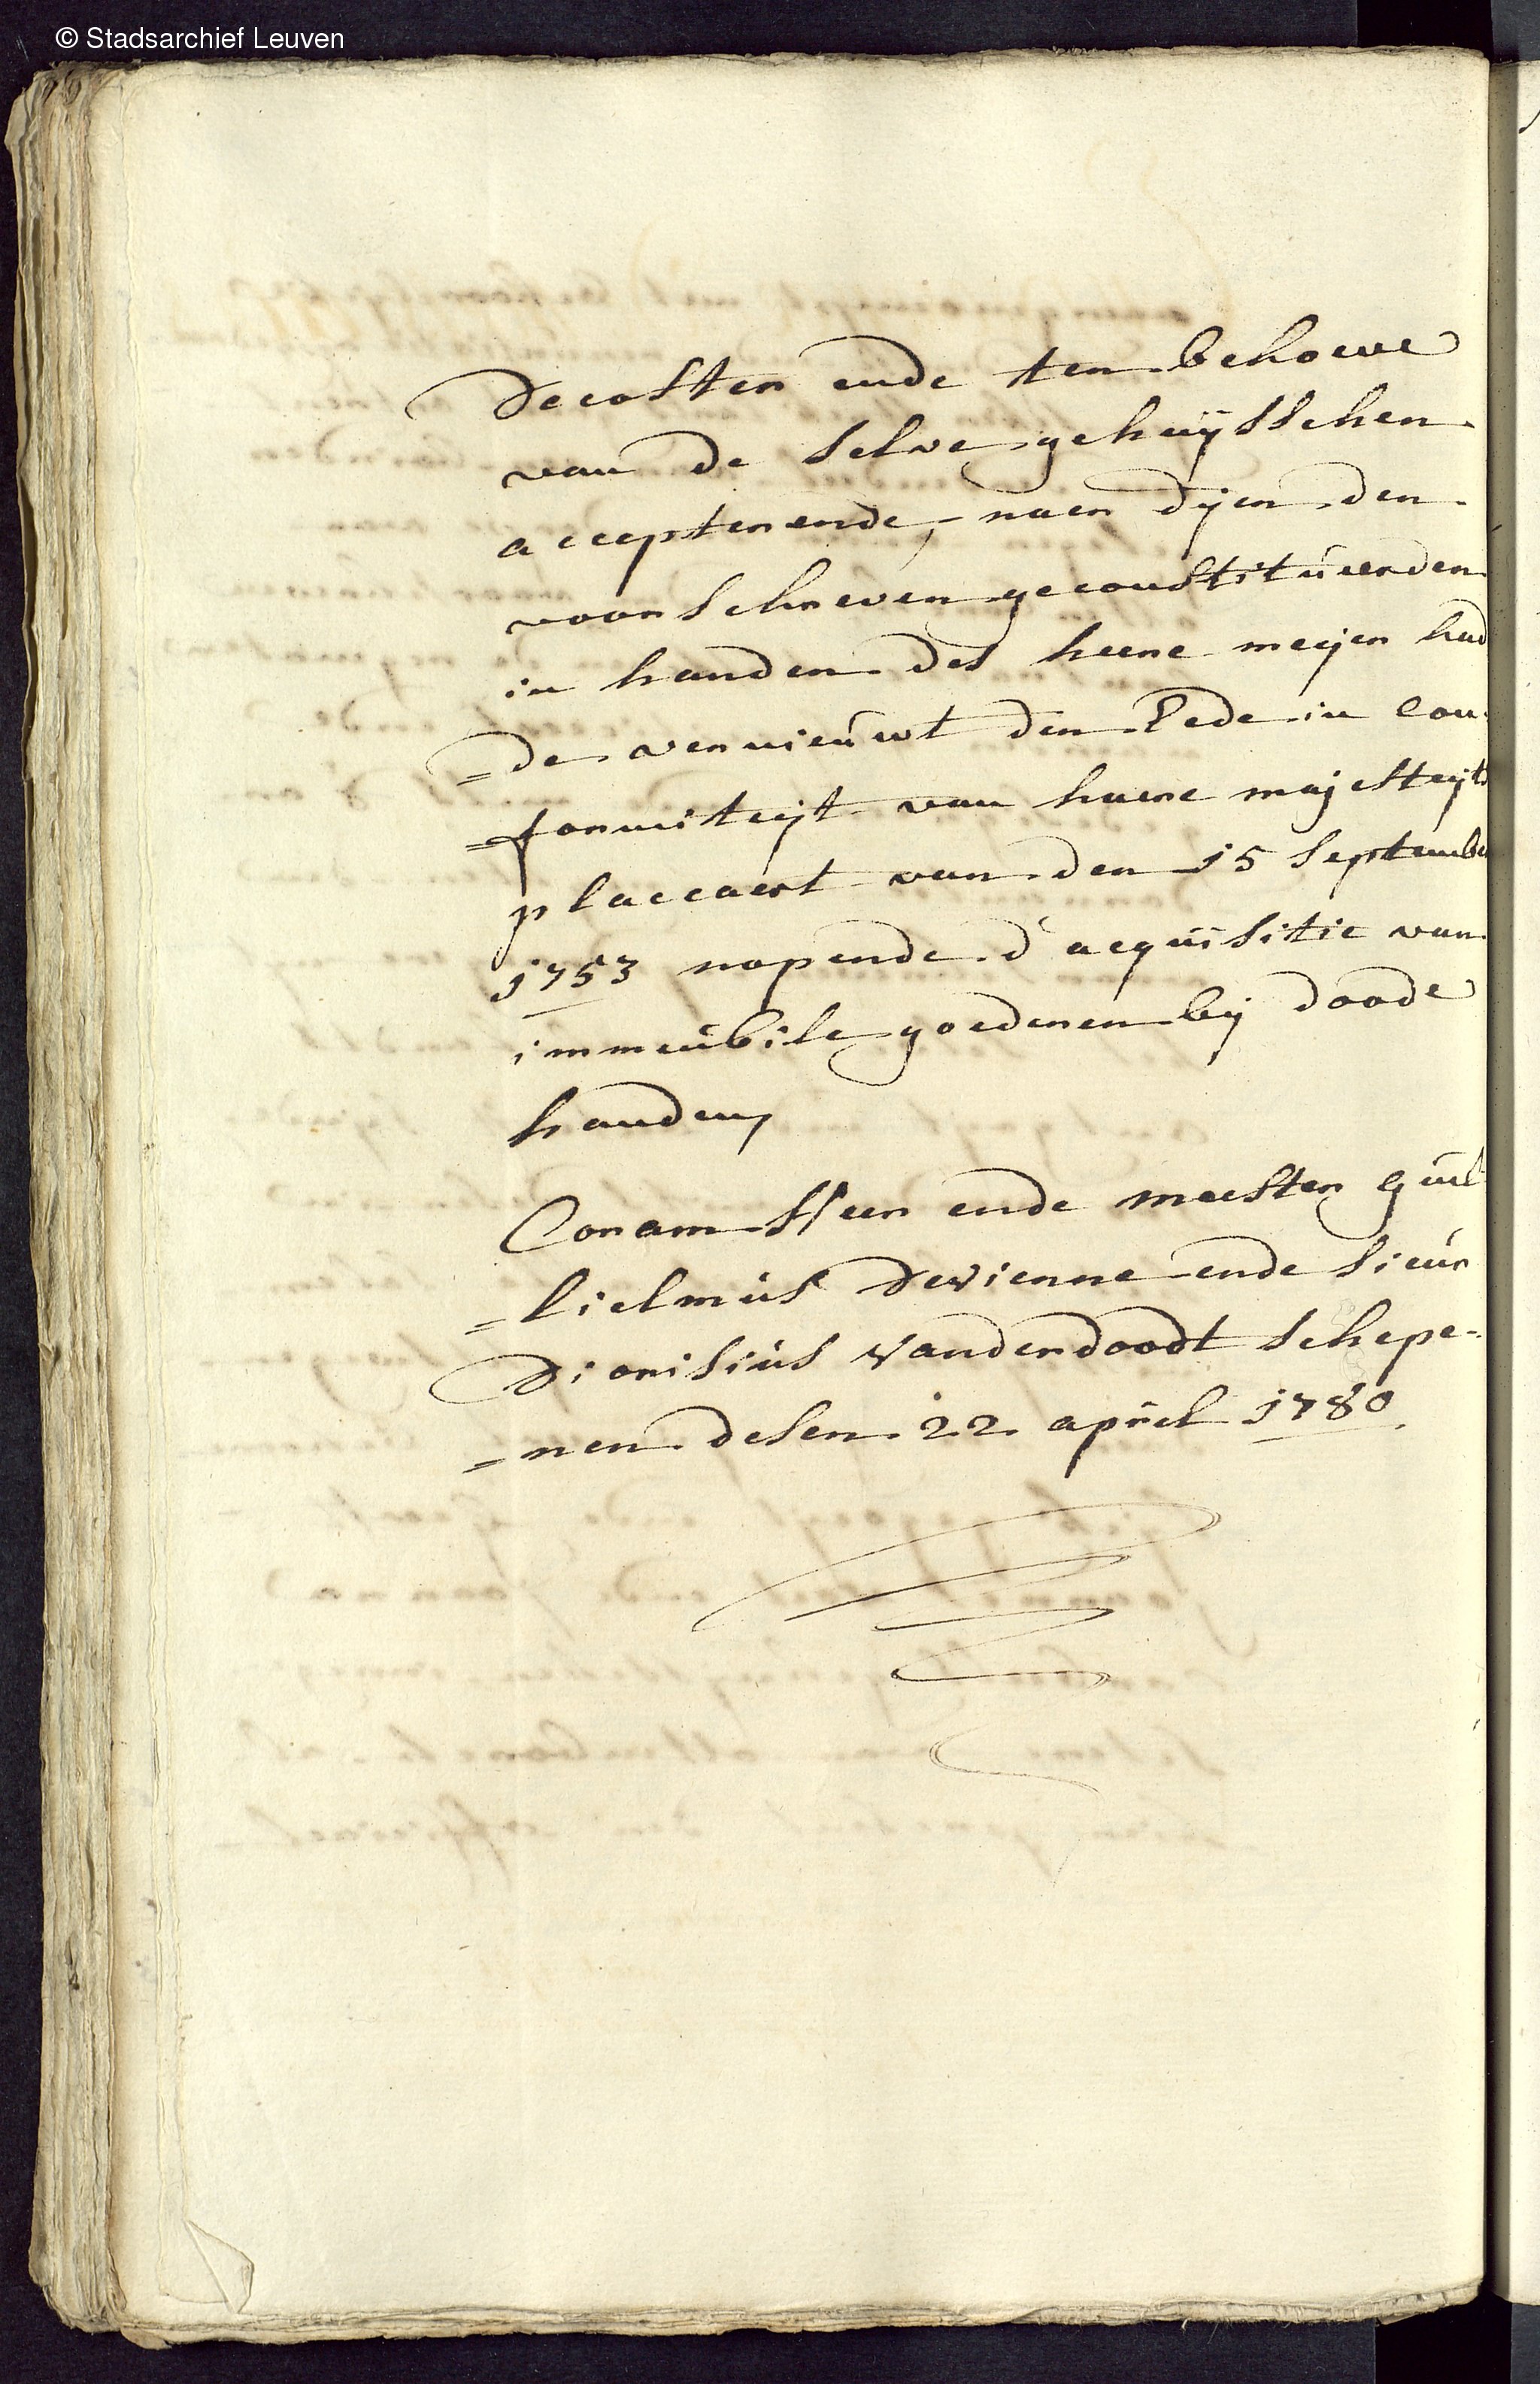 © Stadsarchief Leuven
Decoster ende ten behoeve
van de selve gehuijsschen
accepterende, naer dijen den
voorschreven geconstitueerden
in handen des heere meijer had
=de vernieuwt den Eede in con
=formiteijt van haere majesteijts
placcaert van den 15 September
1753 nopende d'acquisitie van
immeubile goederen bij doode
handen,
Coram Heer ende meester guil
=lielmus Devienne ende sieur
Dionisius Vanderdoodt schepe-
=nen desen 22 april 1780